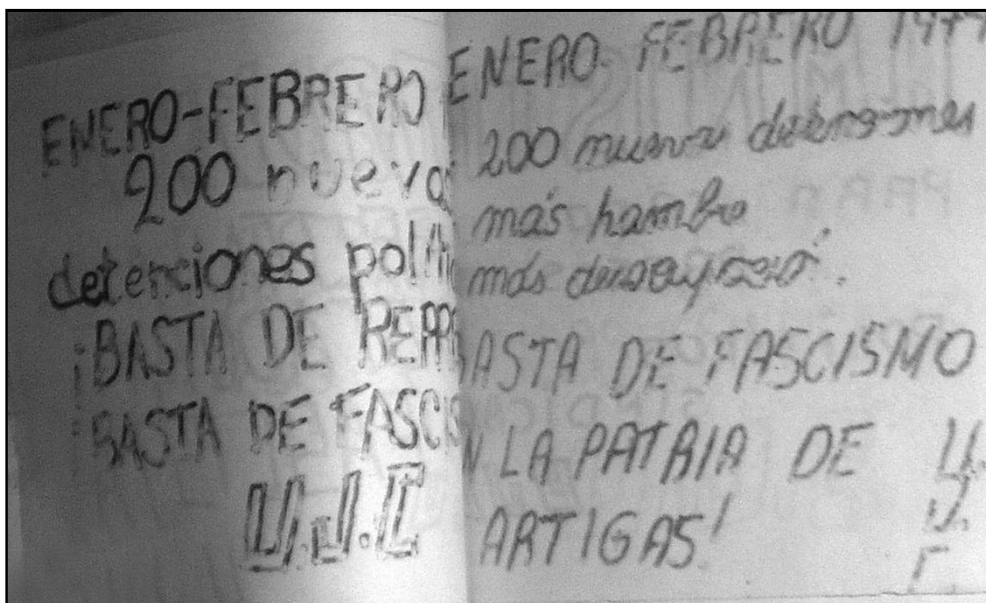 ENERO-FEBRERO
200 nuevas
detenciones polít
¡BASTA DE REPR
¡BASTA DE FASCIS
U.J.C
ENERO-FEBRERO 197
200 nuevas detenciones
más hambre
más desocupació.
BASTA DE FASCISMO
N LA PATRIA DE
ARTIGAS!
U.
J.
C